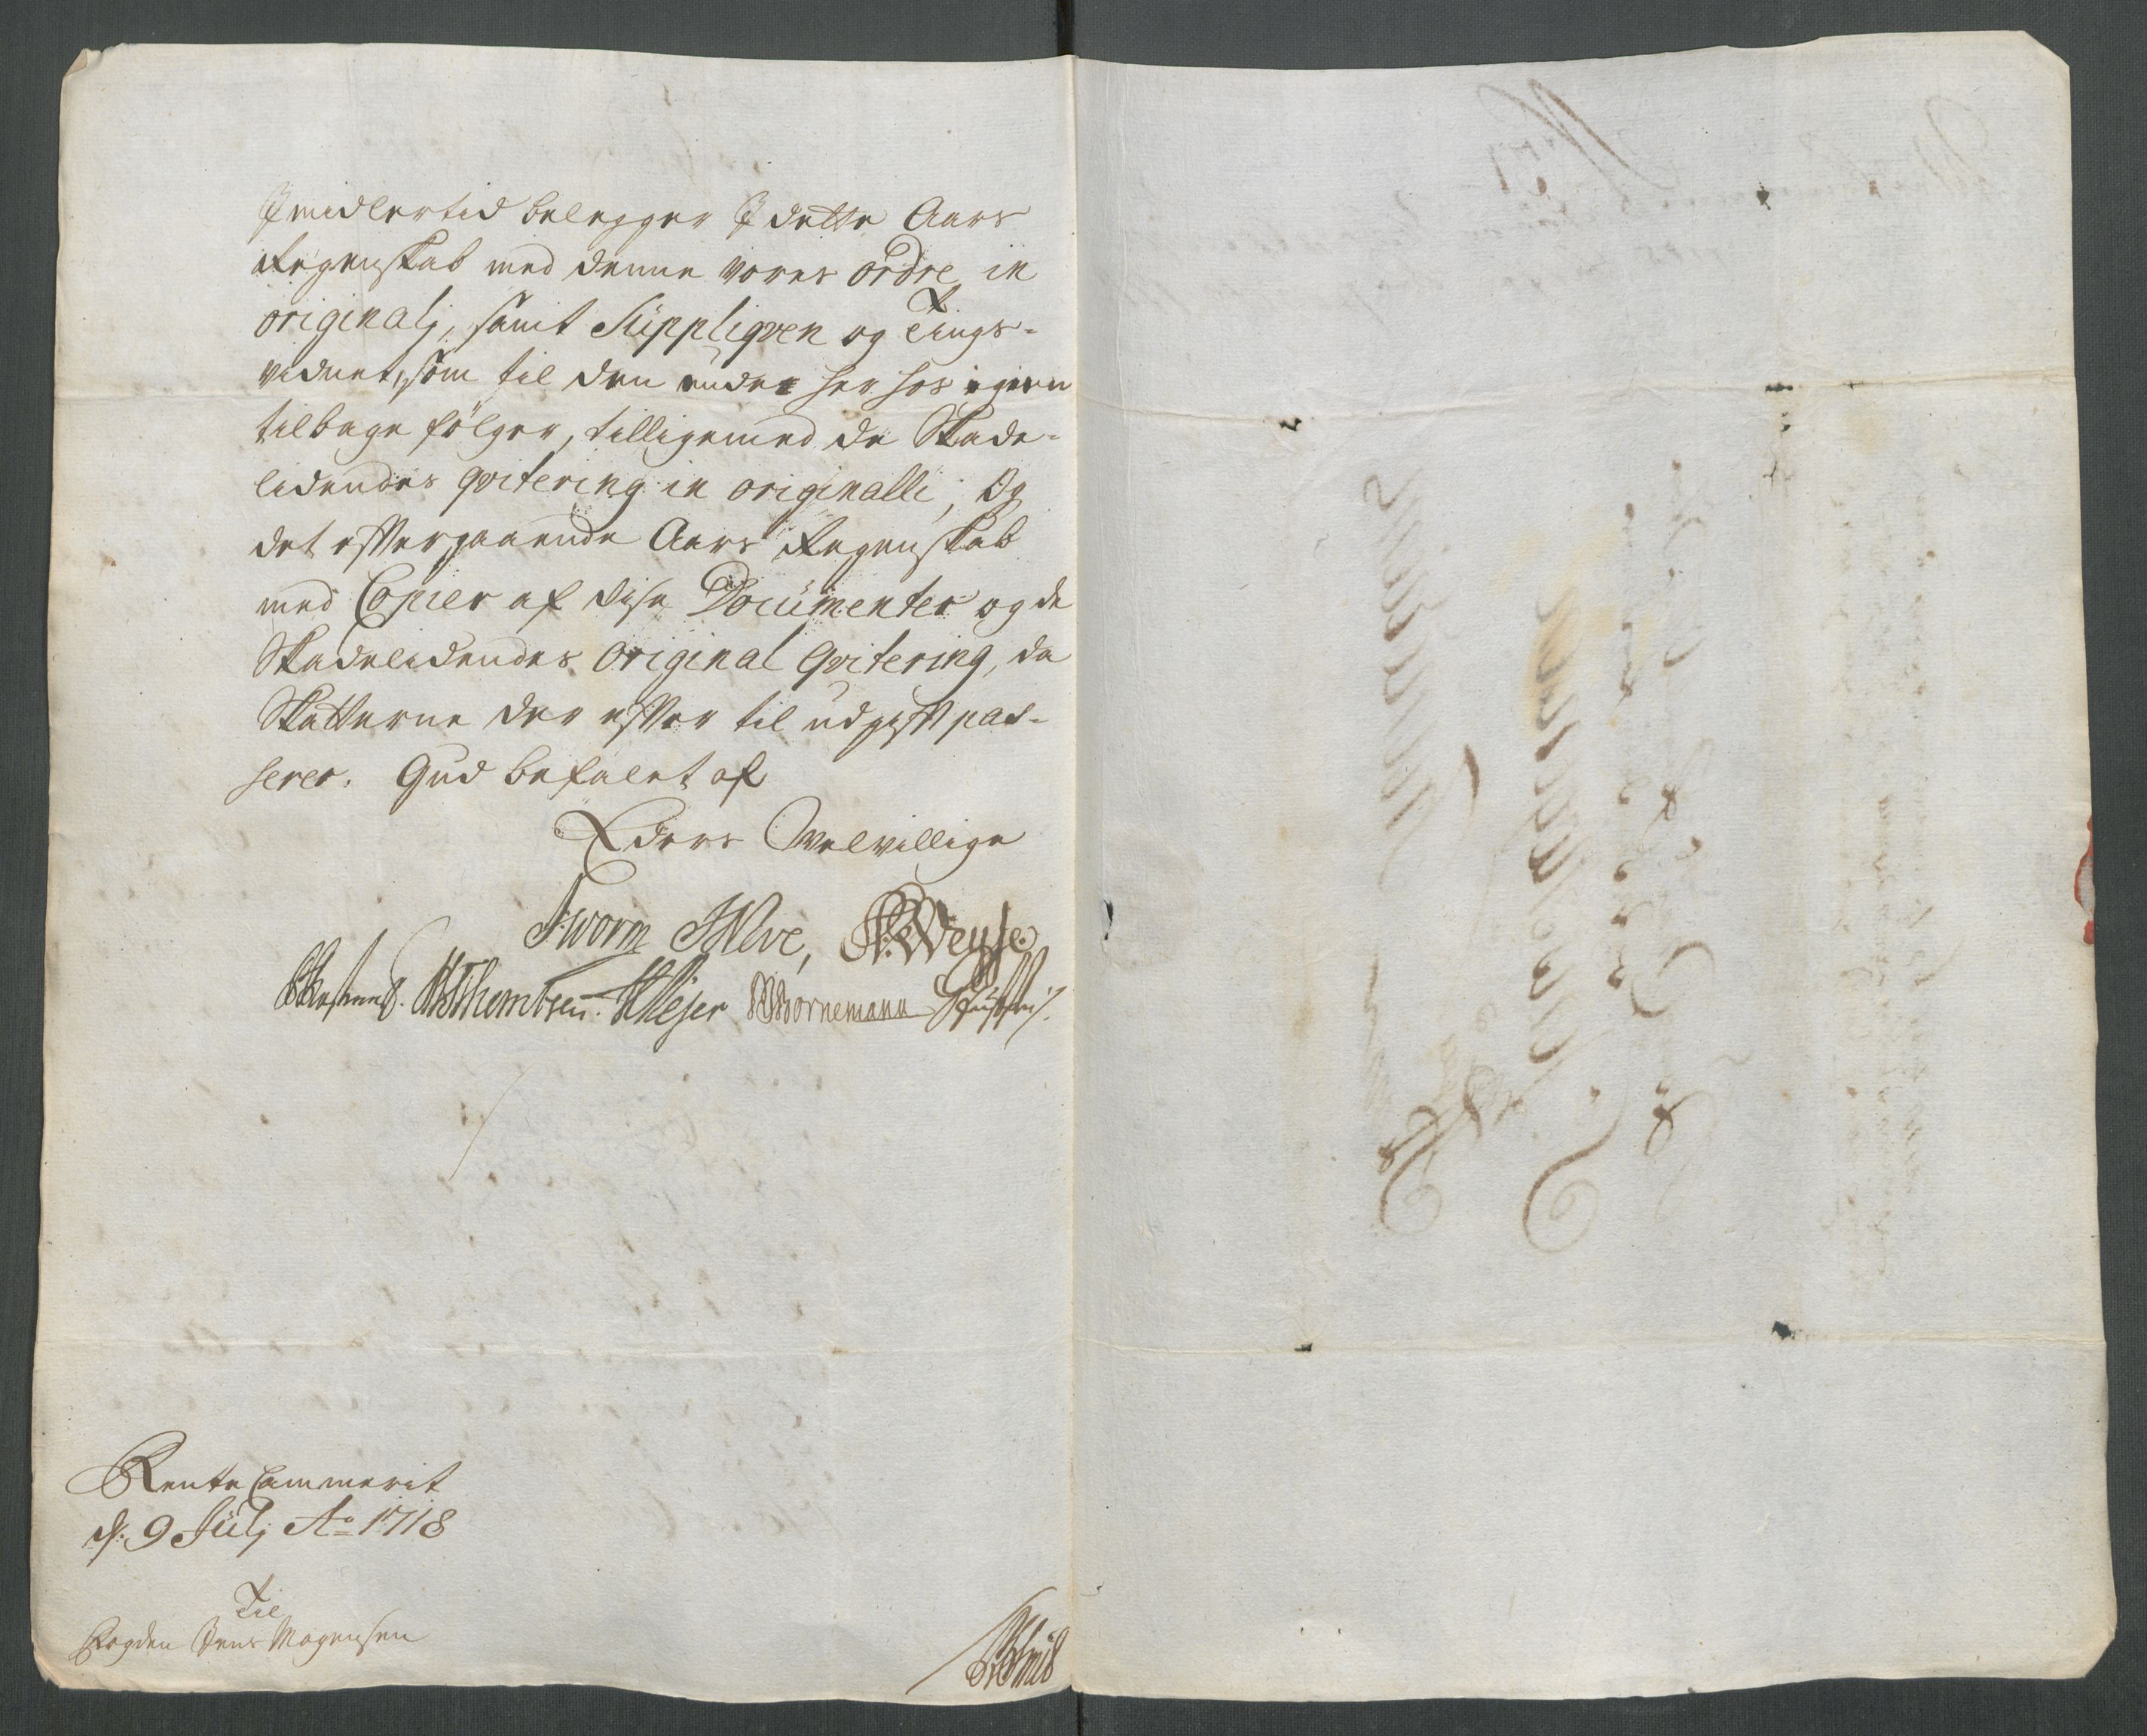 Imidlertid belegger I dette Aars
Regenskab med denne vores ordre in
originalj, samt Süppliqven og Tings-
vidnet, som til den ende her hos igien
tilbage fölger, tilligemed de Skade-
lidendes qvitering in originalli, Og
det efftergaaende Aars Regenskab
med Copier af dise Documenter og de
Skadelidendes original qvitering, da
Skatterne der effter til udgifft pas-
serer. Gud befalet af
Eders Velvillige
F: Worm Weyse
Thomsen Meyer Bornemann
Rente Cammerit
d: 9 Julj Ao 1718
Til
Fogden Jens Mogensen